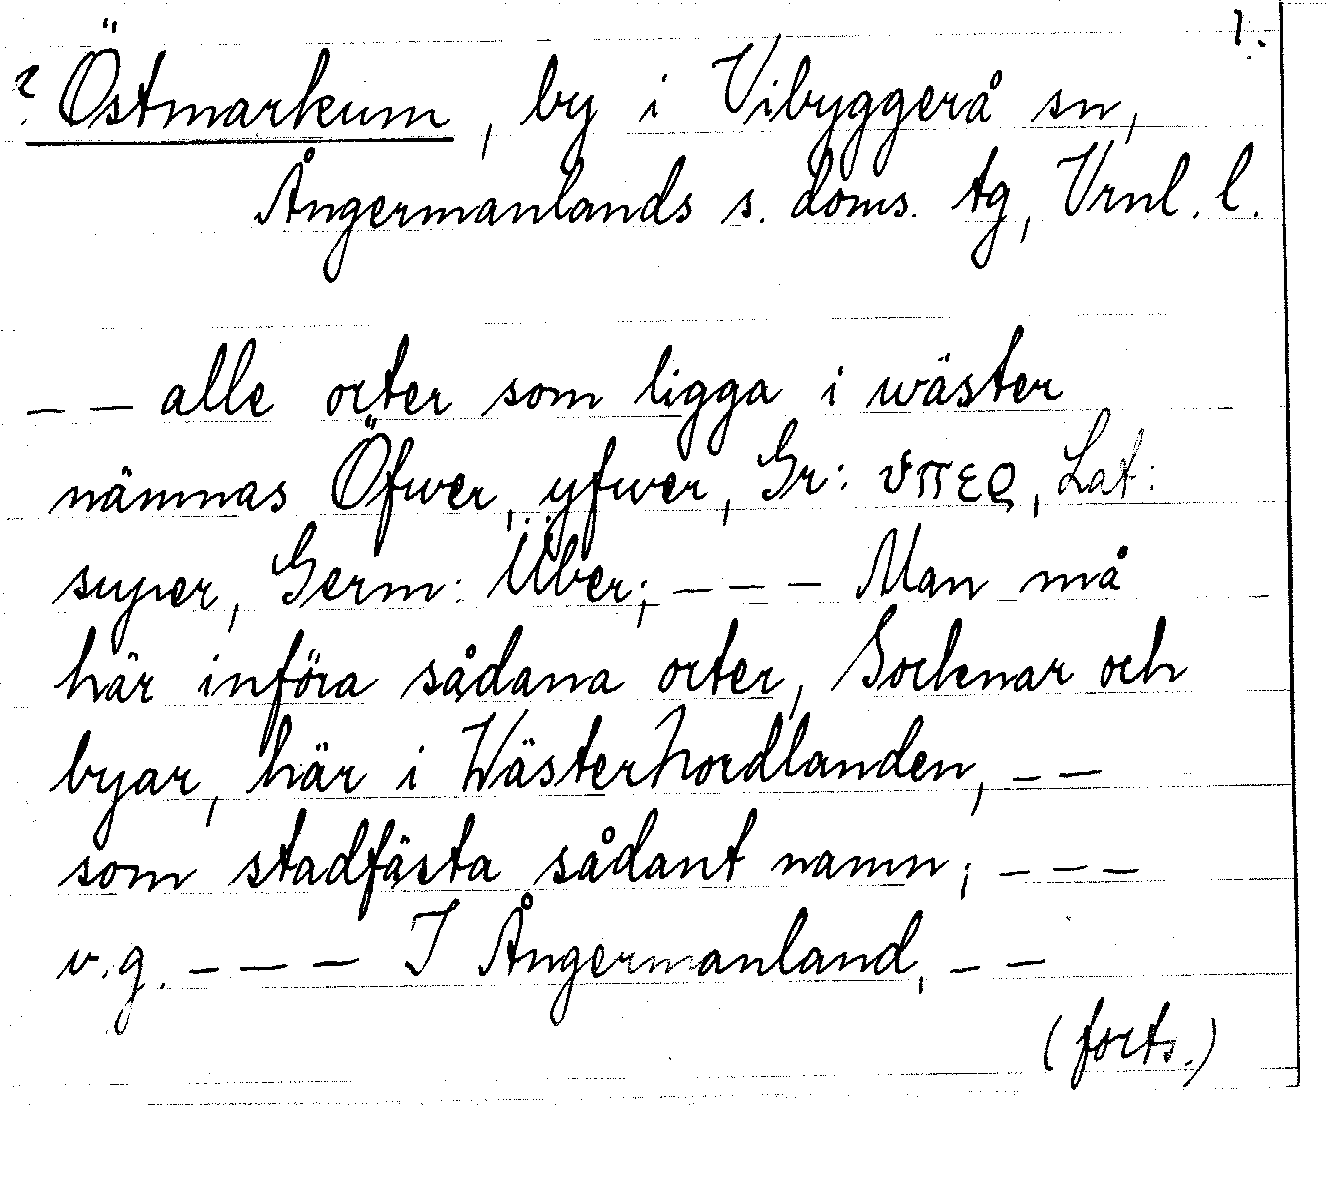 1.
? Östmarkum, by i Vibyggerå sn,
Ångermanlands s. doms. tg, Vrnl. l.
– – alle orter som ligga i wäster
nämnas Öfwer, yfwer, Gr: ὑπερ, Lat:
super, Germ: Über; – – – Man må
här införa sådana orter, Socknar och
byar, här i Wästerhordlanden, – –
som stadfästa sådant namn; – – –
v.g. – – – I Ångermanland, – –
(forts.)